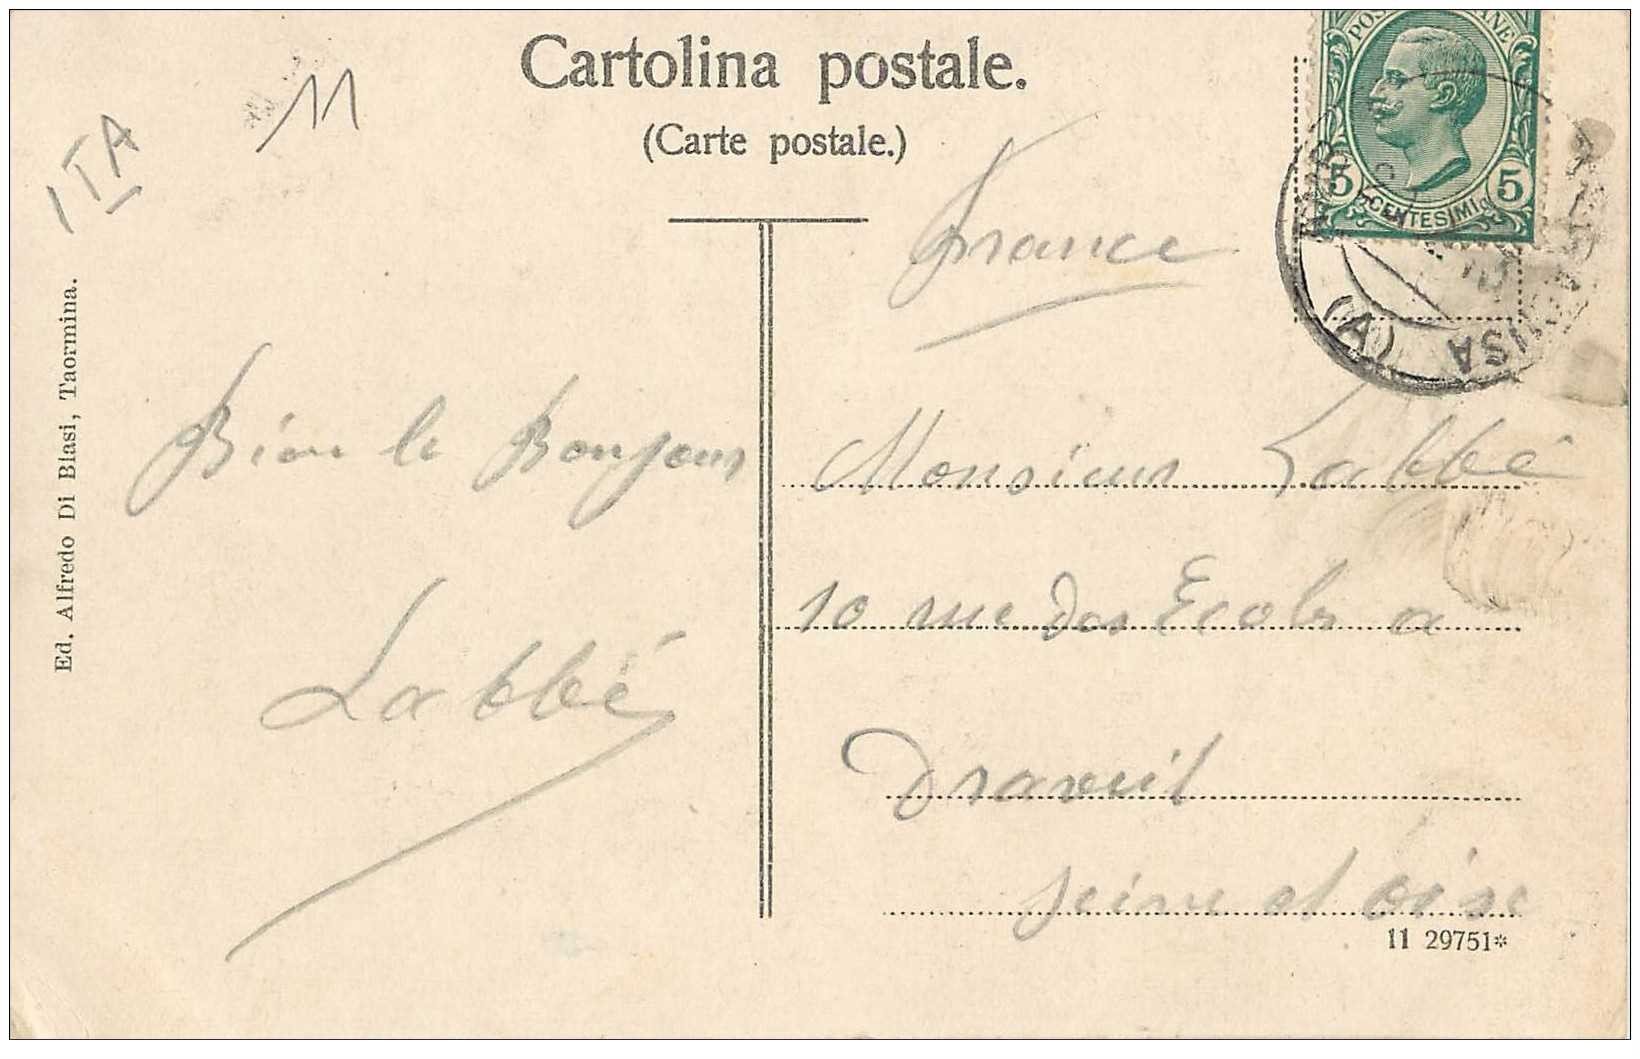 Cartolina postale.
(Carte postale.)
11
ITA
POS ANE
5 5
CENTESIMI
(A)
France
Ed. Alfredo Di Blasi, Taormina.
Bien le Bonjour
Labbé
Monsieur Labbé
10 rue des Ecoles a
Draveil
Seine et Oise
11 29751*